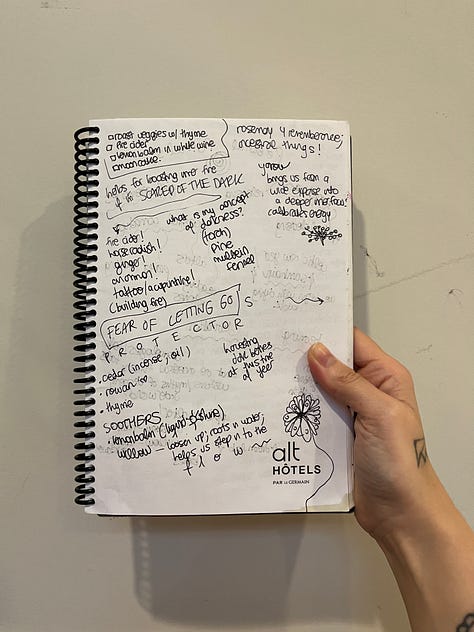 roast veggies w/ thyme
fire cider
lemon balm in white wine
mooncake
rosemary 4 rememberance;
ancestral things!
helps for boosting inner fire
if ur SCARED OF THE DARK
yarrow
brings us from a
wide expanse into
a deeper interface!
calibrates energy
what is my concept
of darkness?
(torch)
pine
mullein
fennel
fire cider!
horseradish!
ginger!
cinnamon!
tattoo/acupuncture!
(building fire)
FEAR OF LETTING GO
S
PROTECTOR
cedar (incense; oil)
rowan
thyme
harvesting
at this time
of year
SOOTHERS
lemonbalm (liquid sunshine)
willow — loosen up; roots in water;
helps us step in to the
f l o w
alt
HÔTELS
PAR LE GERMAIN